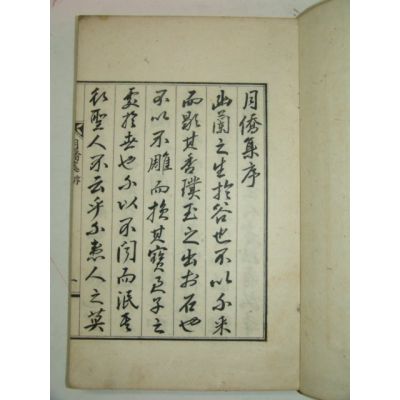 月僑集序
幽蘭之生於谷也不以不采
而歇其香璞玉之出於石也
不以不雕而損其寶君子之
處於世也不以不聞而泯其
聖人不云乎不患人之莫
月僑集序
一